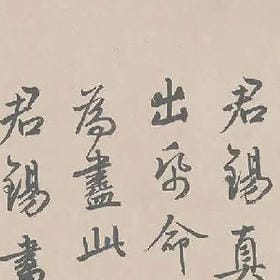 君錫真
出帋命
為盡此
君錫書